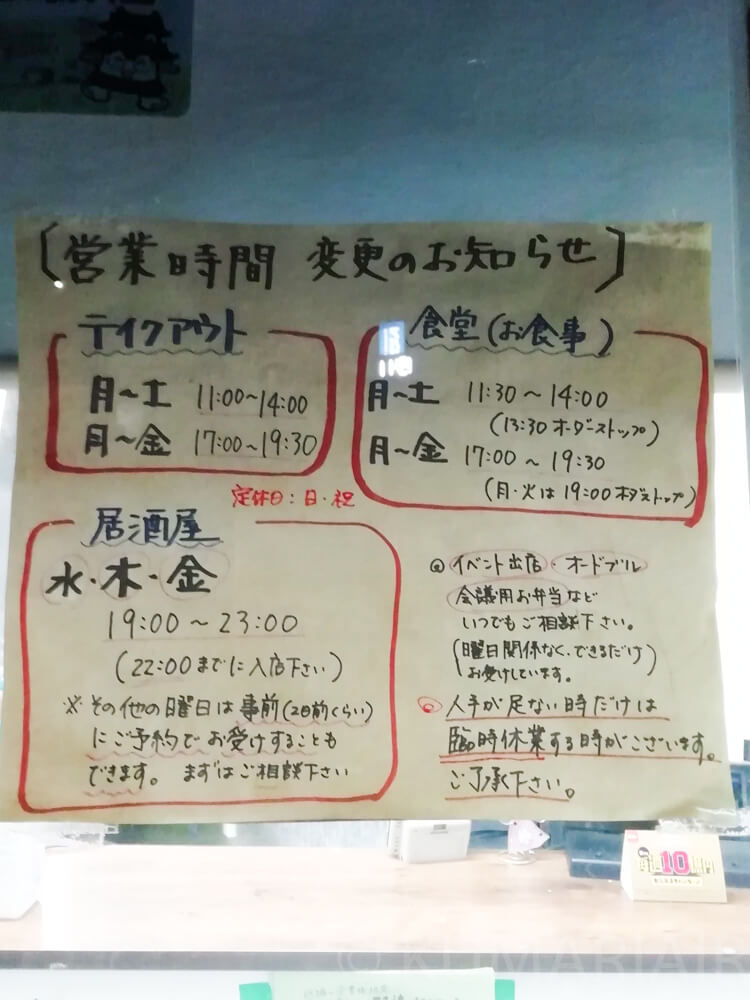 〔営業時間 変更のお知らせ〕
テイクアウト
月〜土 11:00〜14:00
月〜金 17:00〜19:30
食堂(お食事)
月〜土 11:30〜14:00
(13:30 オーダーストップ)
月〜金 17:00〜19:30
(月・火は19:00 オーダストップ)
定休日:日・祝
居酒屋
水・木・金
19:00〜23:00
(22:00までに入店下さい)
※その他の曜日は事前(2日前くらい)
にご予約でお受けすることも
できます。 まずはご相談下さい
◎イベント出店・オードブル
会議用お弁当など
いつでもご相談下さい。
(曜日関係なく、できるだけ
お受けしています。)
◎人手が足ない時だけは
臨時休業する時がございます。
ご了承下さい。
毎週10億円